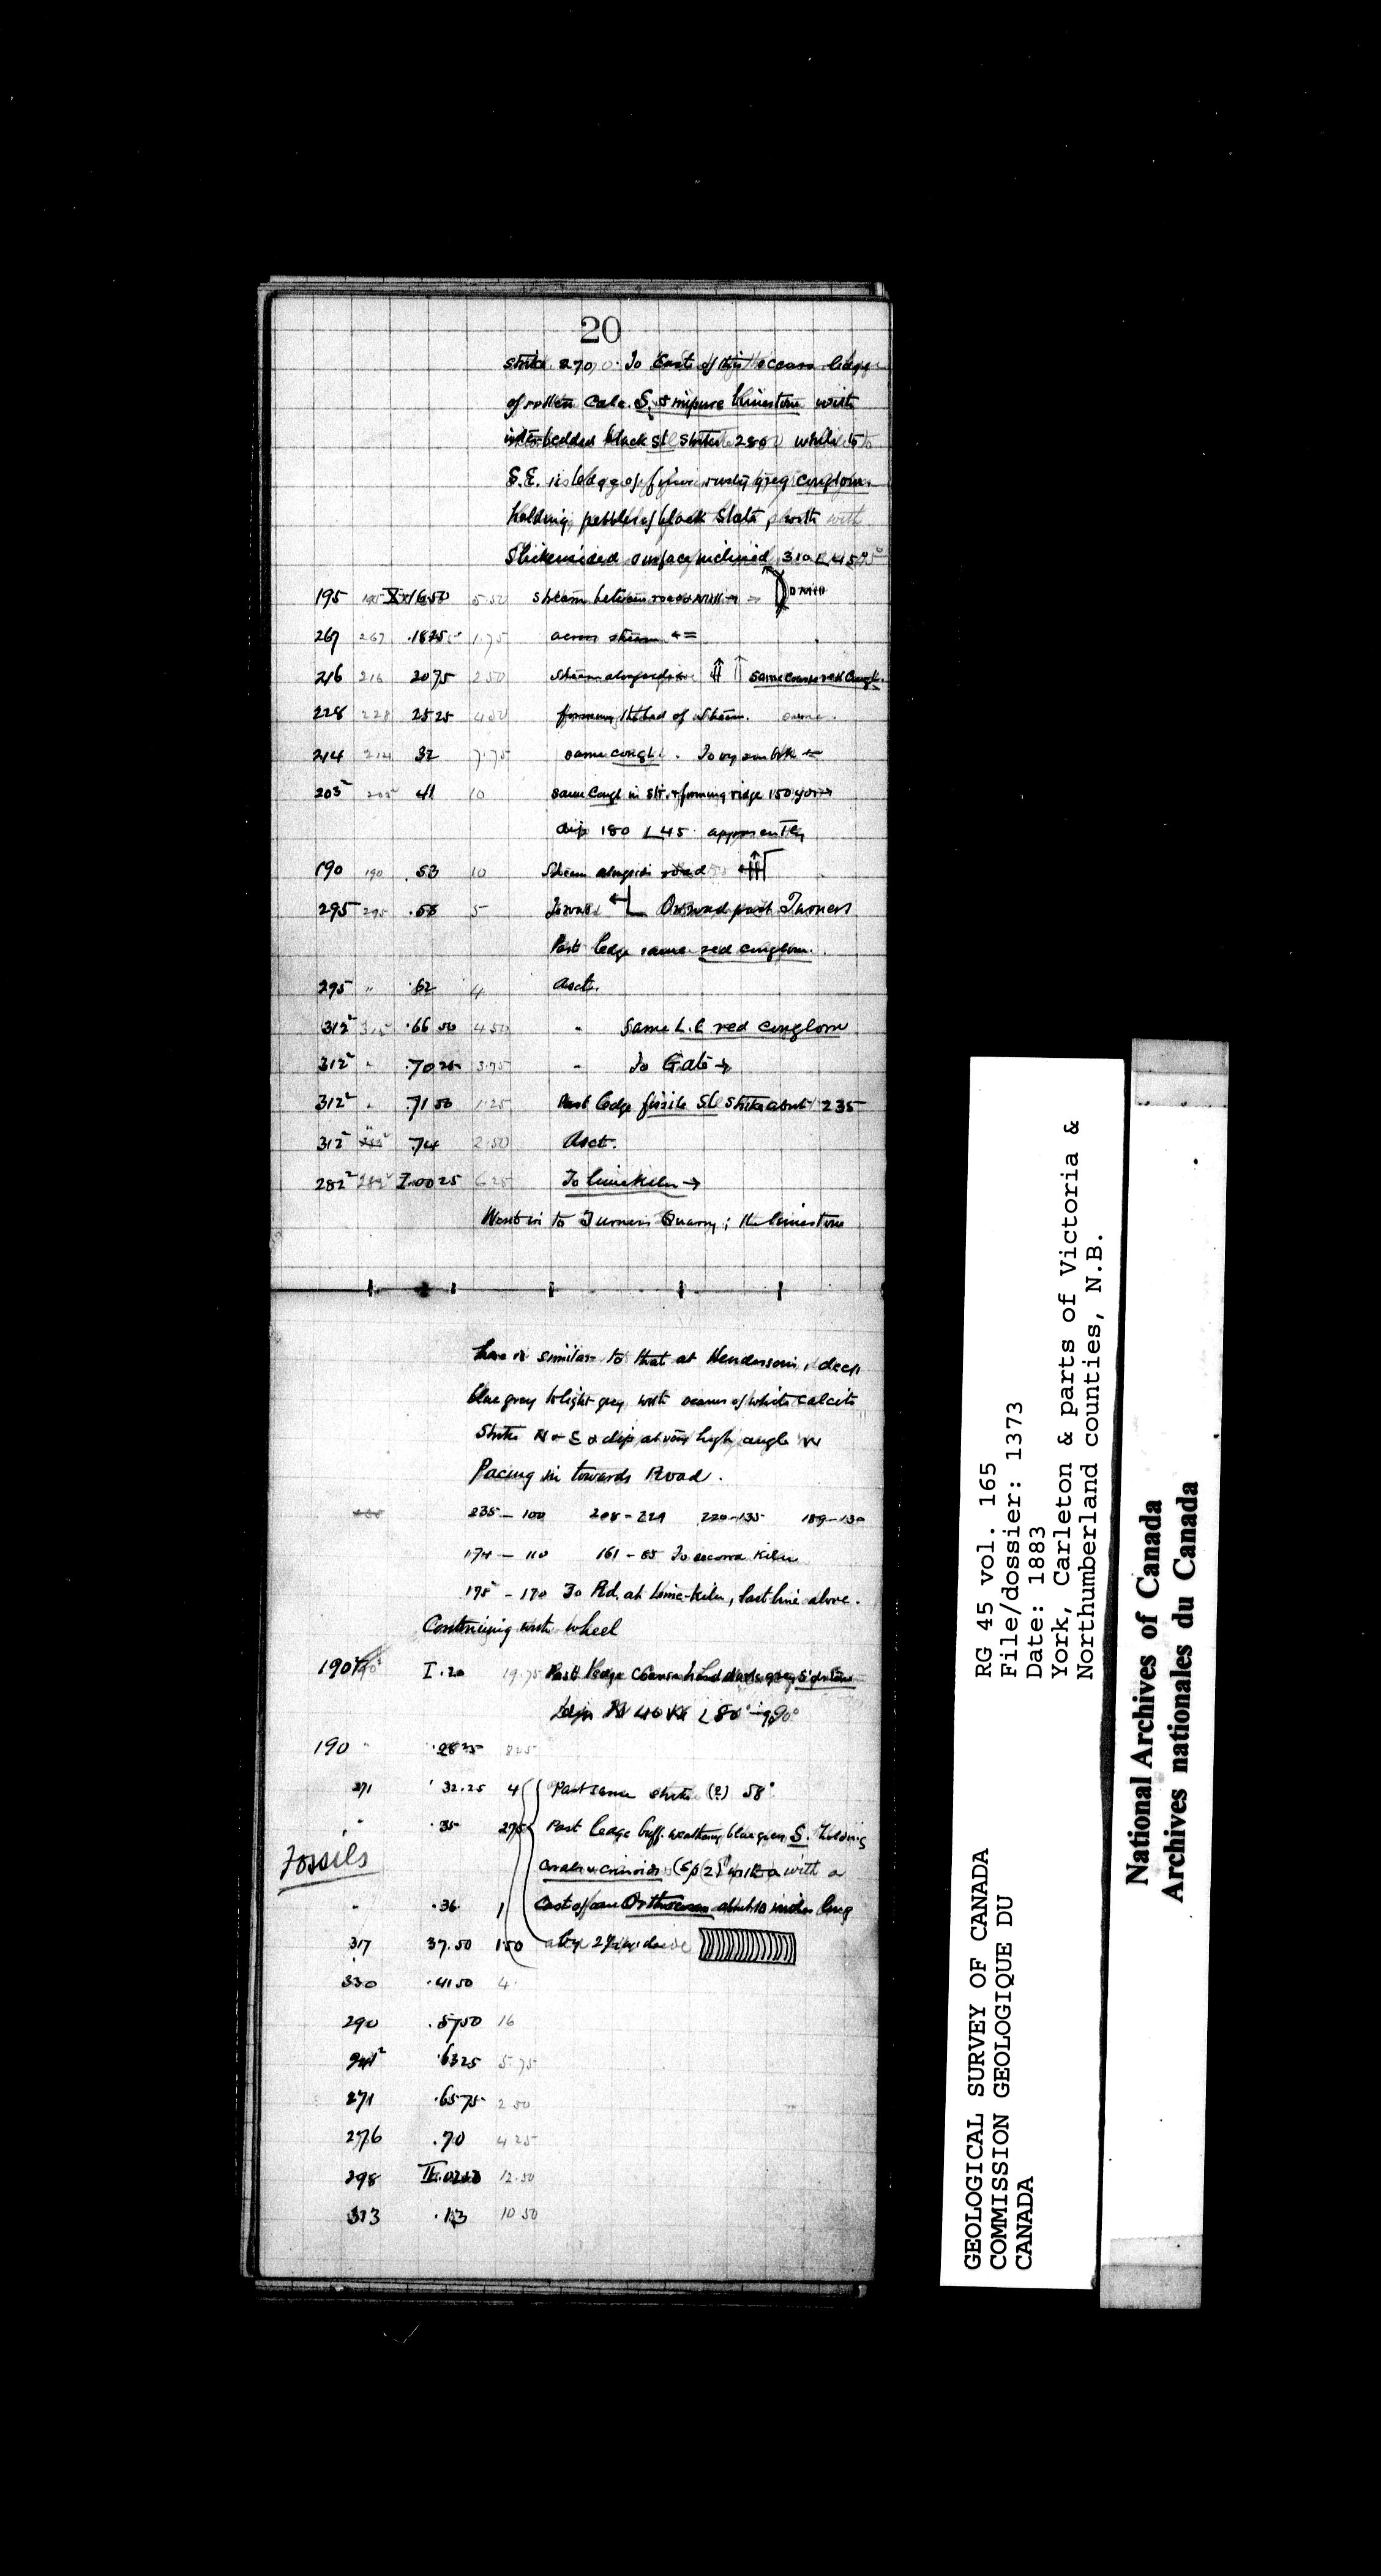 20
strike 270. To East of this occurs ledge
of rotten Calc. S. & impure limestone with
interbedded black sl strike 280 while to
S.E. is ledge of fine rusty grey conglom.
holding pebbles of black slate with
Slickensided surface inclined 310 ∠ 45°
195 195 X.1650 5.50 stream between road & Mill → Mill
267 267 .1825 1.75 across stream ←=
216 216 2075 2.50 Stream alongside same coarse red Congl.
228 228 2525 4.50 forming the bed of stream. same.
214 214 32 7.75 same congl.
203² 203² 41 10 same Congl in str. & forming ridge 150 yds →
dip 180 ∠45 apparently
190 190 .53 10 Stream alongside road
295 295 .58 5 Onward past Turners
Past ledge same red conglom.
295 " .62 4 Asct.
312² 312² .66 50 4.50 " Same L.C. red conglom
312² " .70 25 3.75 " To Gate →
312² " .71 50 1.25 Past ledge fissile Sl strike about 235
312² " .74 2.50 Asct.
282² 282² I.00 25 6.25 To limekiln →
Went in to Turners Quarry; the limestone
here is similar to that at Hendersons, deep
blue grey to light grey with seams of white calcite
Strike N & S & dip at very high angle W
Pacing in towards Road.
235 – 100 208 – 221 220 – 135 189 – 130
174 – 110 161 – 85 To second kiln
175 – 170 To Rd. at Lime-kiln, last line above.
Continuing with wheel
190² 190² I.20 19.75 Past ledge coarse hard dark grey S'dstone
dip N 40 W ∠ 80° – 90°
190 " .2825 8.25
271 .32.25 4 Past same strike (?) 58°
" .35 2.75 Past ledge buff-weathering blue green S. holding
Fossils
corals & crinoids (Sp(2)) with a
" .36 1 Cast of an Orthoceras about 10 inches long
317 37.50 1.50 by 2½ wide
330 .41 50 4
290 .5750 16
.6325 5.75
271 .6575 2 50
276 .70 4 25
298 II.0250 12.50
313 .13 10 50
GEOLOGICAL SURVEY OF CANADA
COMMISSION GEOLOGIQUE DU
CANADA
RG 45 vol. 165
File/dossier: 1373
Date: 1883
York, Carleton & parts of Victoria &
Northumberland counties, N.B.
National Archives of Canada
Archives nationales du Canada